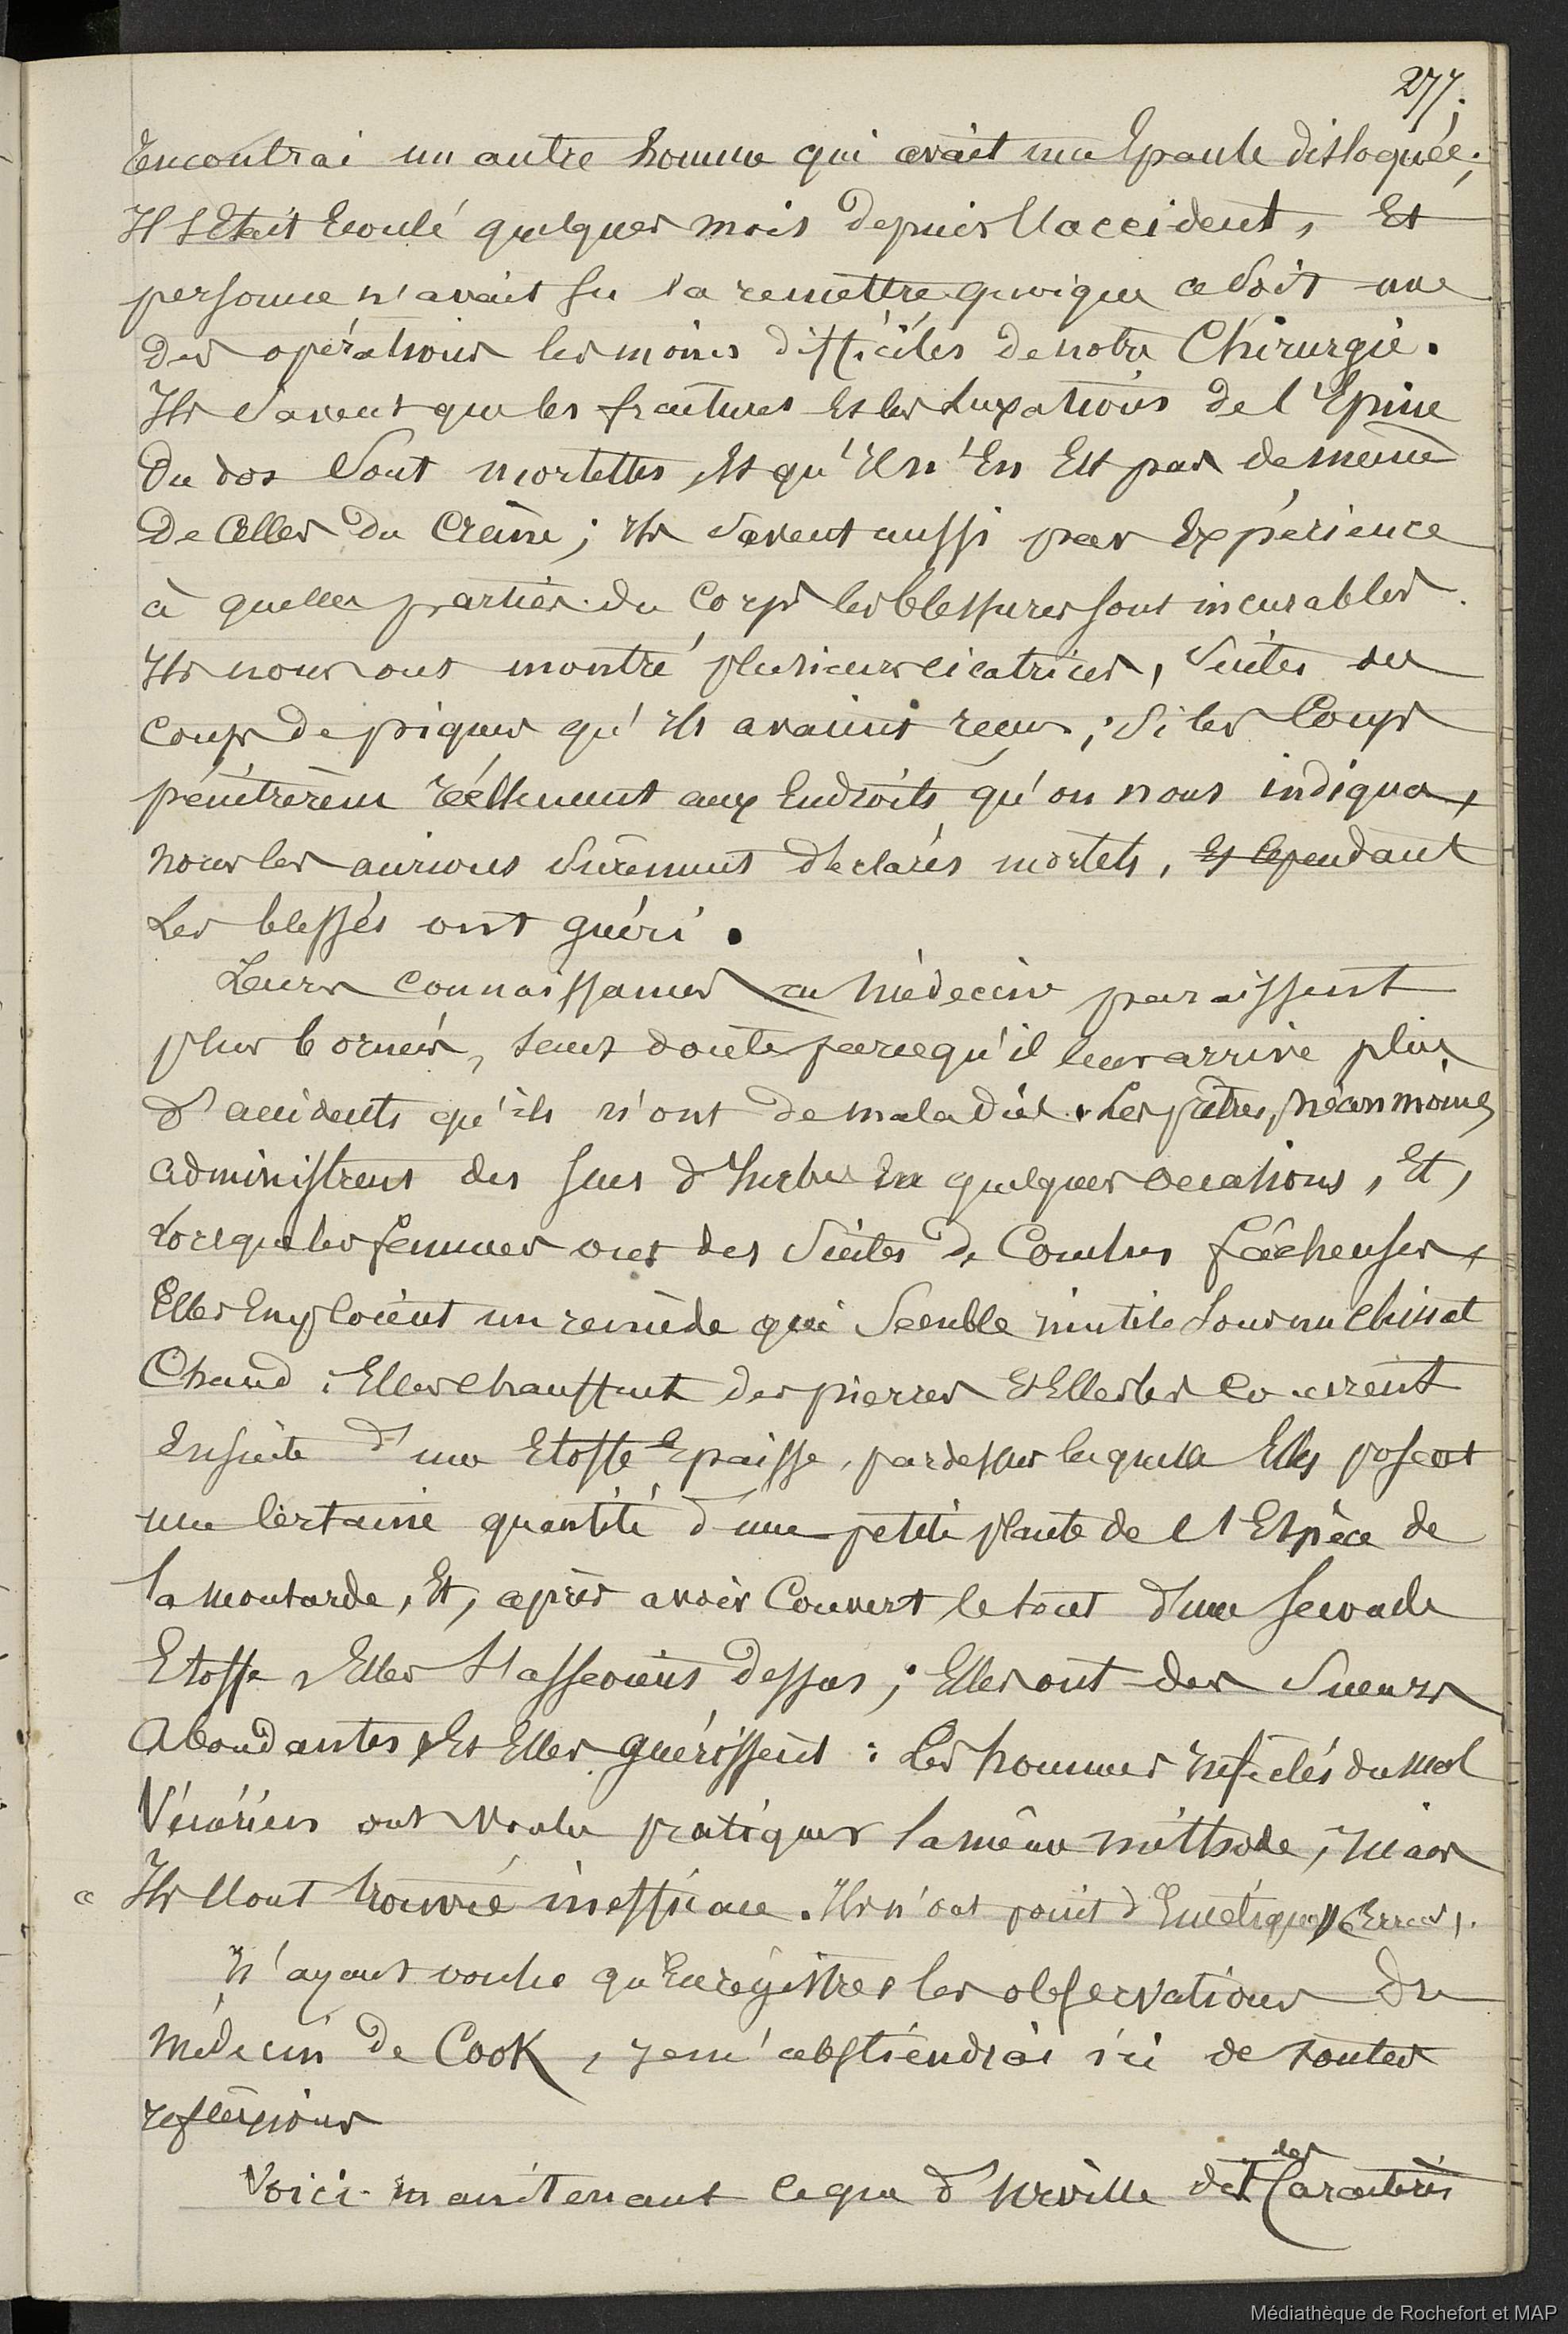 277.
rencontrai un autre homme qui avait une Epaule disloquée;
Il s'Etait Ecoulé quelques mois depuis l'accident, Et
personne n'avait su la remettre quoique ce soit une
des opérations les moins difficiles de notre Chirurgie.
Ils savent que les fractures Et les Luxations de l'Epine
du dos sont mortelles, Et qu'Il n'En Est pas de même
de Celles du Crâne; Ils savent aussi par Expérience
à quelles parties du Corps les blessures sont incurables.
Ils nous ont montré plusieurs cicatrices, suites des
coups de piques qu'ils avaient reçus; si les Coups
pénétrèrent réellement aux Endroits qu'on nous indiqua,
nous les aurions sûrement déclarés mortels, Et Cependant
Les blessés ont guéri.
Leurs connaissances en médecine paraissent
plus bornées, sans doute parcequ'il leur arrive plus
d'accidents qu'ils n'ont de maladies. Les prêtres, néanmoins
administrent des sucs d'herbes En quelques occasions, Et,
Lorsque les femmes ont des suites de Couches fâcheuses,
Elles Emploient un remède qui semble inutile sous un Climat
Chaud: Elles chauffent des pierres Et Elles les Couvrent
Ensuite d'une Etoffe Epaisse, pardessus laquelle Elles posent
une Certaine quantité d'une petite plante de l'Espèce de
la moutarde, Et, après avoir Couvert le tout d'une seconde
Etoffe, Elles s'asseoient dessus; Elles ont des sueurs
Abondantes Et Elles guérissent: Les hommes Infectés du mal
Vénérien ont voulu pratiquer la même méthode, mais
Ils l'ont trouvée inefficace. Ils n'ont point d'Emétiques
N'ayant voulu qu'Enregistrer les observations du
médecin de Cook, je m'abstiendrai ici de toutes
reflexions
Voici maintenant Ce que d'Urville dit des Caractères
Médiathèque de Rochefort et MAP